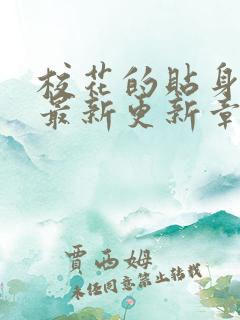 校花的贴身
最新更新章
賈西姆
未经同意禁止转载